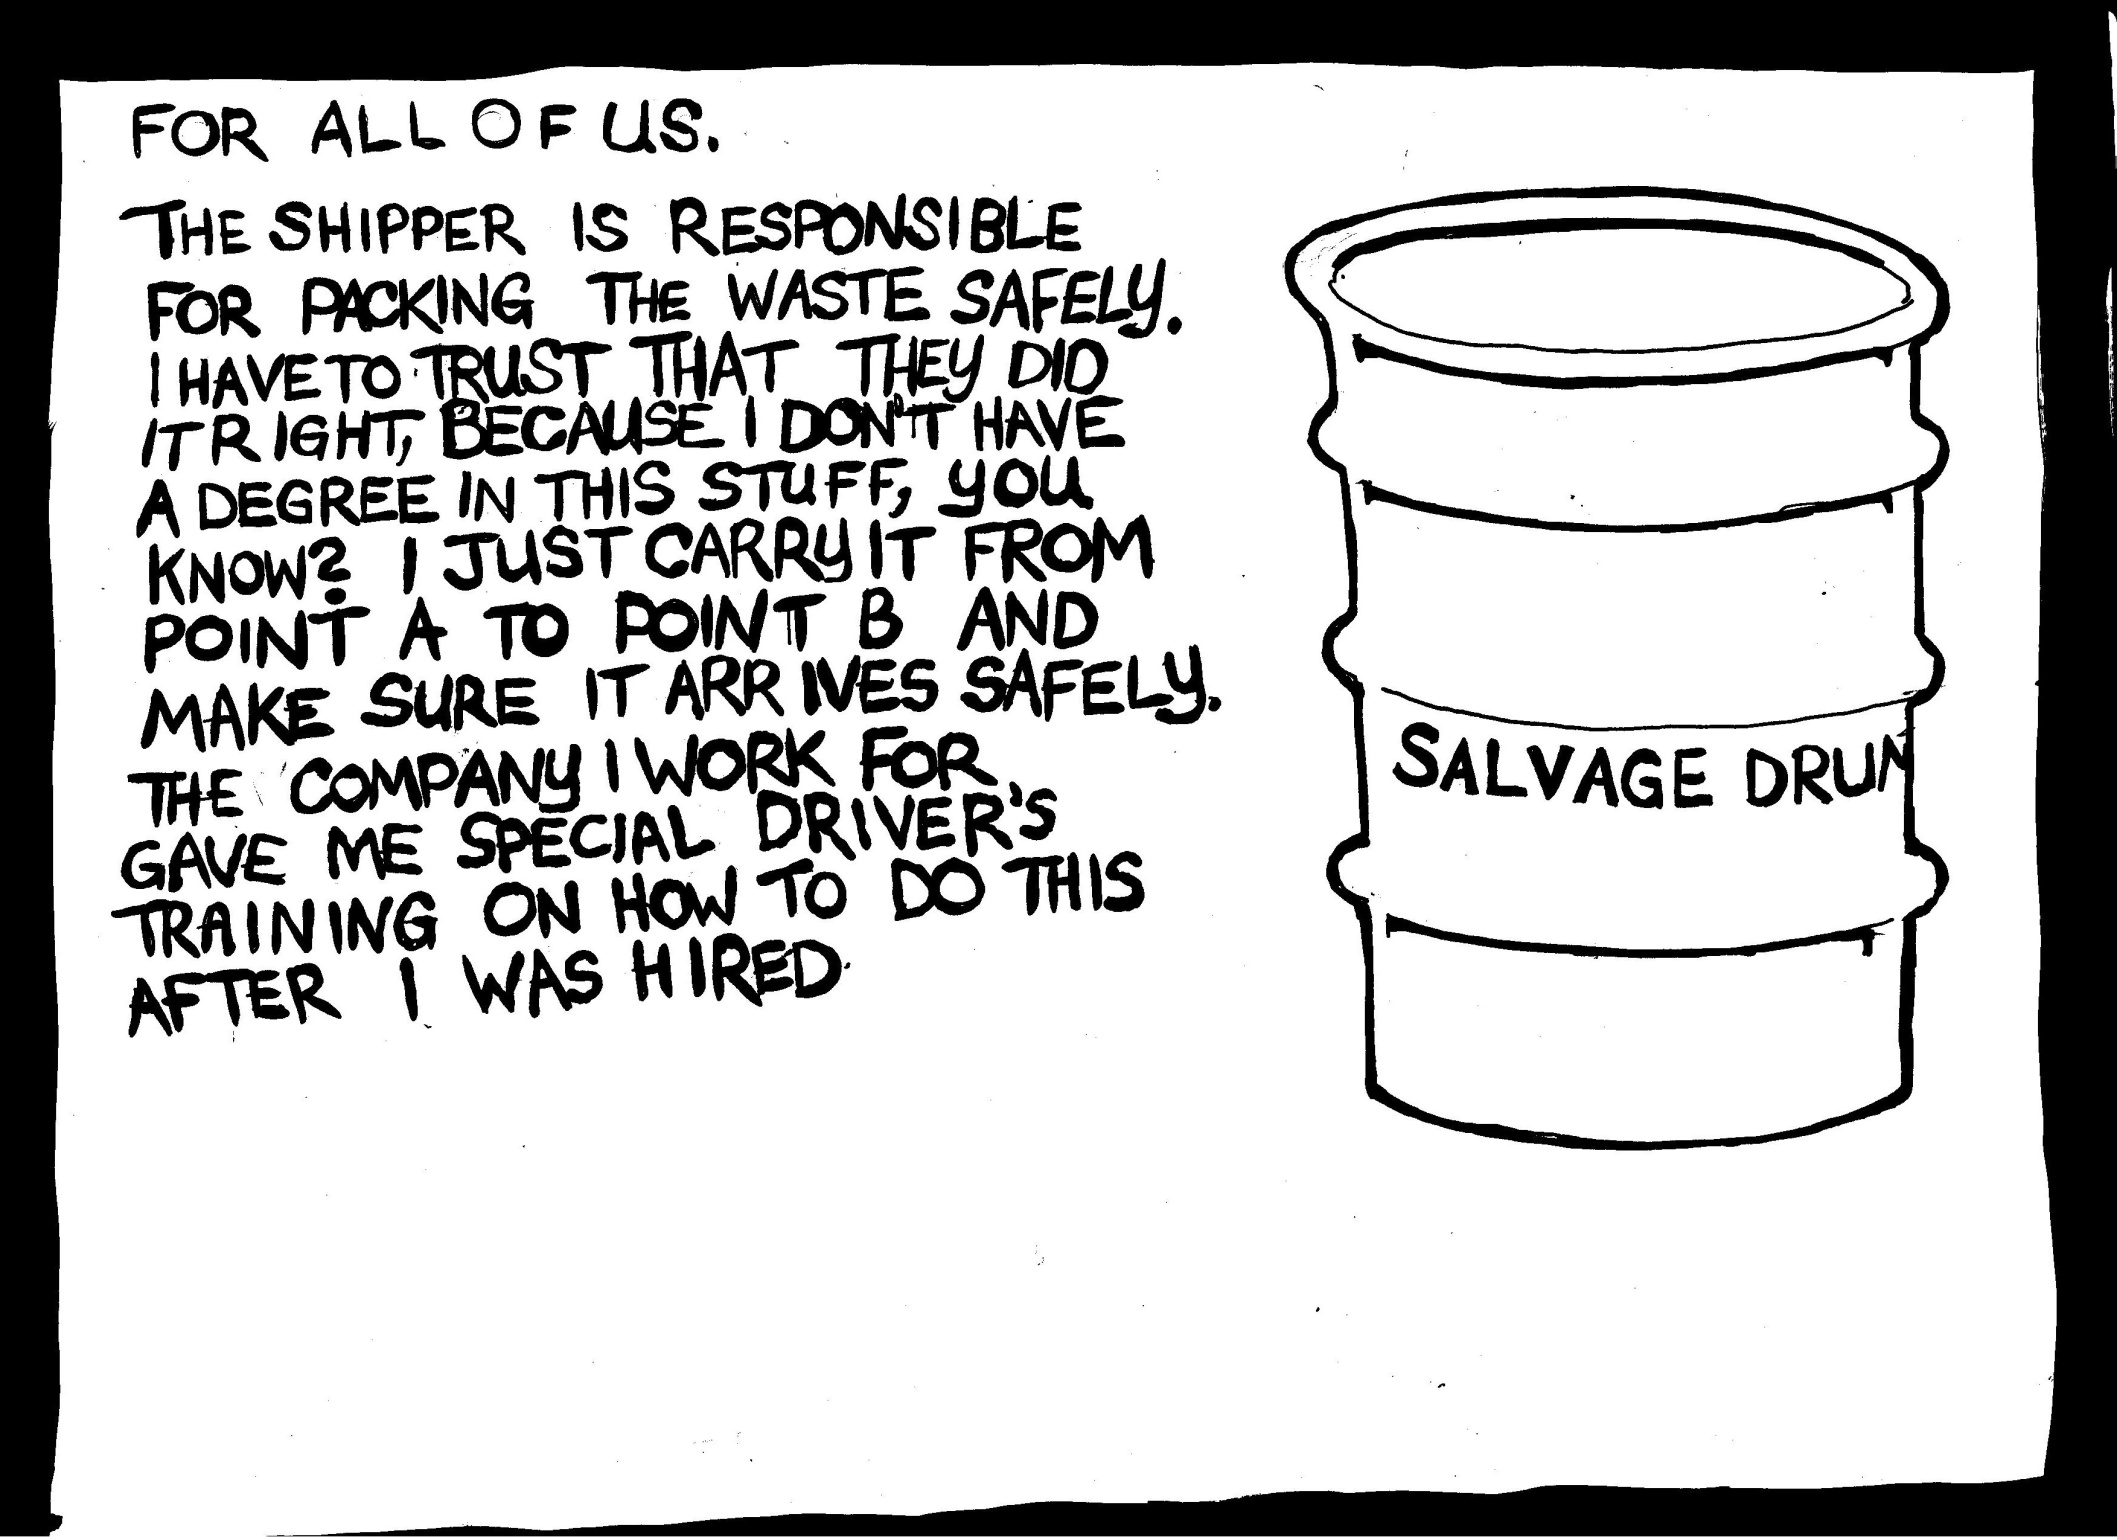 FOR ALL OF US.
THE SHIPPER IS RESPONSIBLE
FOR PACKING THE WASTE SAFELY.
I HAVE TO TRUST THAT THEY DID
IT RIGHT, BECAUSE I DON'T HAVE
A DEGREE IN THIS STUFF, YOU
KNOW? I JUST CARRY IT FROM
POINT A TO POINT B AND
MAKE SURE IT ARRIVES SAFELY.
THE COMPANY I WORK FOR
GAVE ME SPECIAL DRIVER'S
TRAINING ON HOW TO DO THIS
AFTER I WAS HIRED.
SALVAGE DRUM